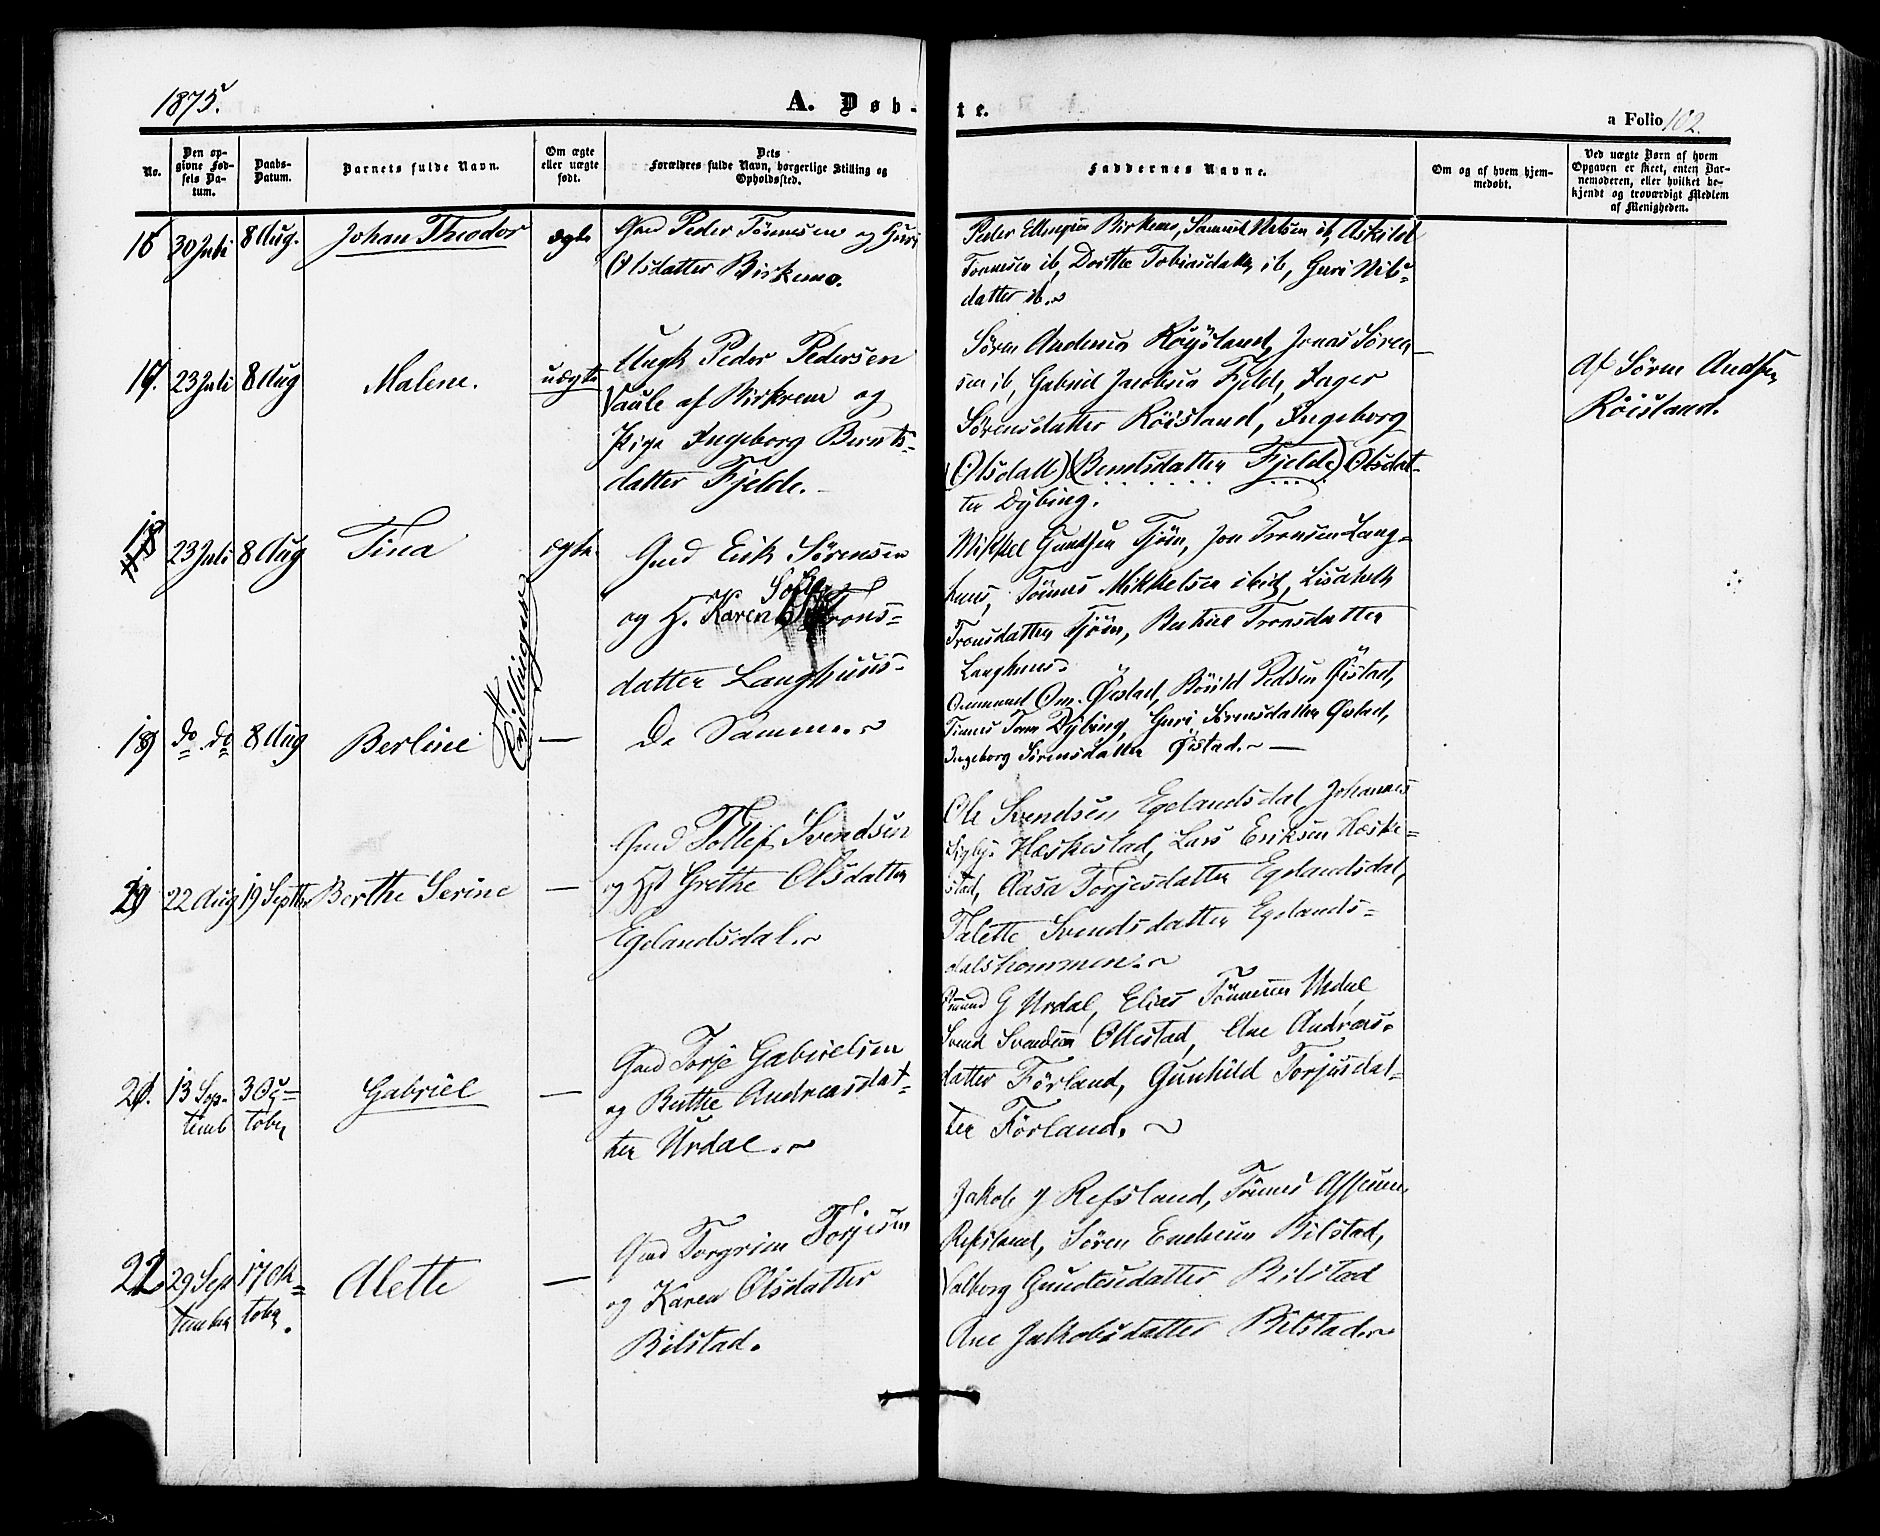 1875.
A. Døb-
te.
a Folio 102.
No.
Den op-
givne Fød-
sels Da-
tum.
Daabs-
Datum.
Barnets fulde Navn.
Om ægte
eller uægte
født.
Dets
Forældres fulde Navn, borgerlige Stilling og
Opholdssted.
Faddernes Navne.
Om og af hvem hjem-
medøbt.
Ved uægte Børn af hvem
Opgaven er skeet, enten Bar-
nemoderen, eller hvilket be-
kjendt og troværdigt Medlem
af Menigheden.
16 30 Juli 8 Aug. Johan Theodor ægte
Gmd Peder Tønnesen og Guri
Olsdatter Birkemo.
Peder Birkemo, Samuel Nelsen ib, Askild
Tønnesen ib, Dorthe Tobiasdatter ib, Guri Nils-
datter ib.
17. 23 Juli 8 Aug Malene. uægte
Ungk Peder Pedersen
Vaule af Birkrem og
Pige Ingeborg Bernts-
datter Fjelde.
Søren Røysland, Jonas Søren-
sen ib, Gabriel Jacobsen Fjelde, Inger
Sørensdatter Röisland, Ingeborg
(Olsdatt) (Berntsdatter Fjelde) Olsdat-
ter Dybing.
Af Sören
Röisland.
18 23 Juli 8 Aug Tina ægte
Gmd Erik Sørensen
Sofie
og H. Karen Trons-
datter Langhuus.
Mikkel Tjörn, Jon Tronsen Lang-
huus, Tönnes Mikkelsen ibid, Lisabeth
Tronsdatter Tjörn, Tronsdatter
Langhuus
Tvillinger
19 do do 8 Aug Berline —
De Samme.
Ommund Om. Østad, Pedsen Øistad,
Dybing, Guri Sörensdatter Østad,
Ingeborg Sörensdatter Østad. —
20 22 Aug 19 Septbr Berthe Serine —
Gmd Tollef Svendsen
og Hst Grethe Olsdatter
Egelandsdal.
Ole Svendsen Egelandsdal, Johannes
Heskestad, Lars Eriksen Heske-
stad, Aasa Torjesdatter Egelandsdal,
Talette Svendsdatter Egelands-
dalshommen.
21. 13 Sep-
temb 3 Oc-
tober Gabriel —
Gmd Torje Gabrielsen
og Berthe Andreasdat-
ter Urdal.
G Urdal, Elias Tönnesen Urdal
Svend Svendsen Ollestad, Ane Andreas-
datter Förland, Gunhild Torjusdat-
ter Förland.
22 29 Sep
tember 17 Ok-
tober. Alette —
Gmd Torgrim Torjesen
og Karen Olsdatter
Bilstad.
Jakob J Refsland, Tönnes
Refsland, Sören Bilstad,
Valborg Bilstad
Ane Jakobsdatter Bilstad.